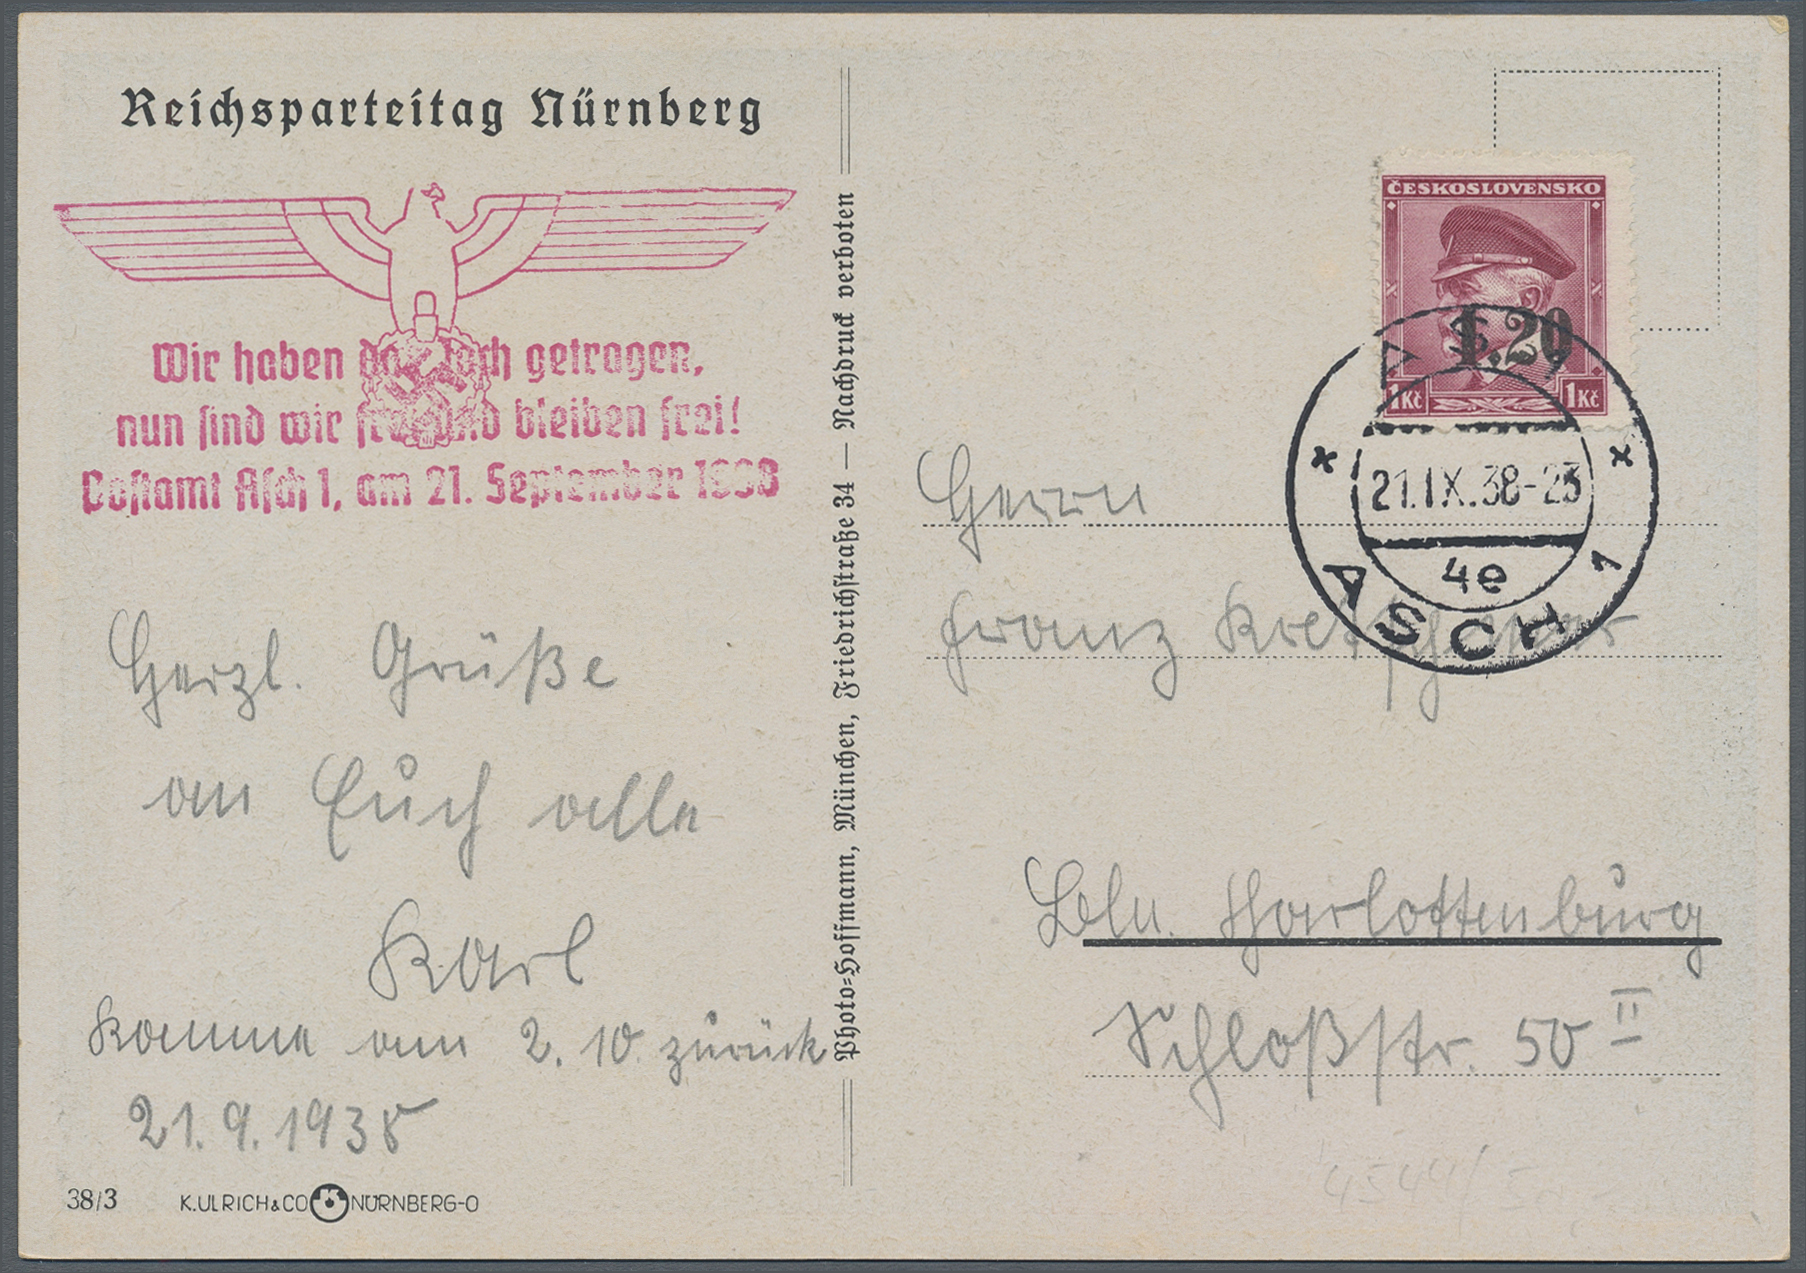 Reichsparteitag Nürnberg
Wir haben das Joch getragen,
nun sind wir frei und bleiben frei!
Postamt Asch 1, am 21. September 1938
Herzl. Grüße
an Euch alle
Karl
Komme am 2. 10. zurück
21. 9. 1938
38/3 K. ULRICH & CO NÜRNBERG-O
Photo-Hoffmann, München, Friedrichstraße 34 — Nachdruck verboten
ČESKOSLOVENSKO
1.20
1Kč 1Kč
AŠ 1
21.IX.38-23
4e
ASCH 1
Herrn
Franz Kretschmar
Bln. Charlottenburg
Schloßstr. 50 II